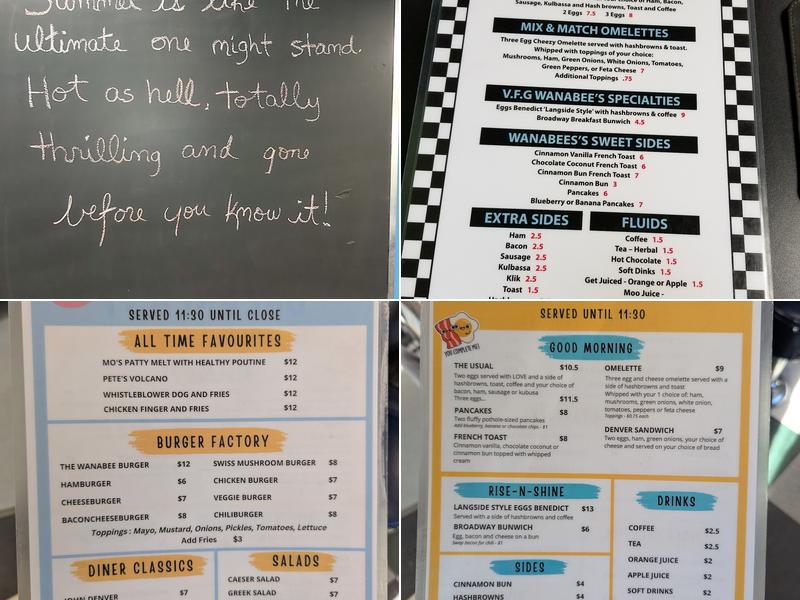 Summer is like the
ultimate one might stand.
Hot as hell, totally
thrilling and gone
before you know it!
Sausage, Kulbassa and Hash browns, Toast and Coffee
2 Eggs 7.5 3 Eggs 8
MIX & MATCH OMELETTES
Three Egg Cheezy Omelette served with hashbrowns & toast.
Whipped with toppings of your choice:
Mushrooms, Ham, Green Onions, White Onions, Tomatoes,
Green Peppers, or Feta Cheese 7
Additional Toppings .75
V.F.G WANABEE'S SPECIALTIES
Eggs Benedict 'Langside Style' with hashbrowns & coffee 9
Broadway Breakfast Bunwich 4.5
WANABEES'S SWEET SIDES
Cinnamon Vanilla French Toast 6
Chocolate Coconut French Toast 6
Cinnamon Bun French Toast 7
Cinnamon Bun 3
Pancakes 6
Blueberry or Banana Pancakes 7
EXTRA SIDES
Ham 2.5
Bacon 2.5
Sausage 2.5
Kulbassa 2.5
Klik 2.5
Toast 1.5
FLUIDS
Coffee 1.5
Tea – Herbal 1.5
Hot Chocolate 1.5
Soft Dinks 1.5
Get Juiced - Orange or Apple 1.5
Moo Juice -
SERVED 11:30 UNTIL CLOSE
ALL TIME FAVOURITES
MO'S PATTY MELT WITH HEALTHY POUTINE $12
PETE'S VOLCANO $12
WHISTLEBLOWER DOG AND FRIES $12
CHICKEN FINGER AND FRIES $12
BURGER FACTORY
THE WANABEE BURGER $12
HAMBURGER $6
CHEESEBURGER $7
BACONCHEESEBURGER $8
SWISS MUSHROOM BURGER $8
CHICKEN BURGER $7
VEGGIE BURGER $7
CHILIBURGER $8
Toppings : Mayo, Mustard, Onions, Pickles, Tomatoes, Lettuce
Add Fries $3
DINER CLASSICS
JOHN DENVER $7
SALADS
CAESER SALAD $7
GREEK SALAD $7
SERVED UNTIL 11:30
YOU COMPLETE ME!
GOOD MORNING
THE USUAL $10.5
Two eggs served with LOVE and a side of
hashbrowns, toast, coffee and your choice of
bacon, ham, sausage or kubusa
Three eggs... $11.5
PANCAKES $8
Two fluffy pothole-sized pancakes
Add blueberry, banana or chocolate chips - $1
FRENCH TOAST $8
Cinnamon vanilla, chocolate coconut or
cinnamon bun topped with whipped
cream
OMELETTE $9
Three egg and cheese omelette served with a
side of hashbrowns and toast
Whipped with your 1 choice of: ham,
mushrooms, green onions, white onions,
tomatoes, peppers or feta cheese
Toppings - $0.75 each
DENVER SANDWICH $7
Two eggs, ham, green onions, your choice of
cheese and served on your choice of bread
RISE-N-SHINE
LANGSIDE STYLE EGGS BENEDICT $13
Served with a side of hashbrowns and coffee
BROADWAY BUNWICH $6
Egg, bacon and cheese on a bun
Swap bacon for chili - $1
SIDES
CINNAMON BUN $4
HASHBROWNS $4
DRINKS
COFFEE $2.5
TEA $2.5
ORANGE JUICE $2
APPLE JUICE $2
SOFT DRINKS $2